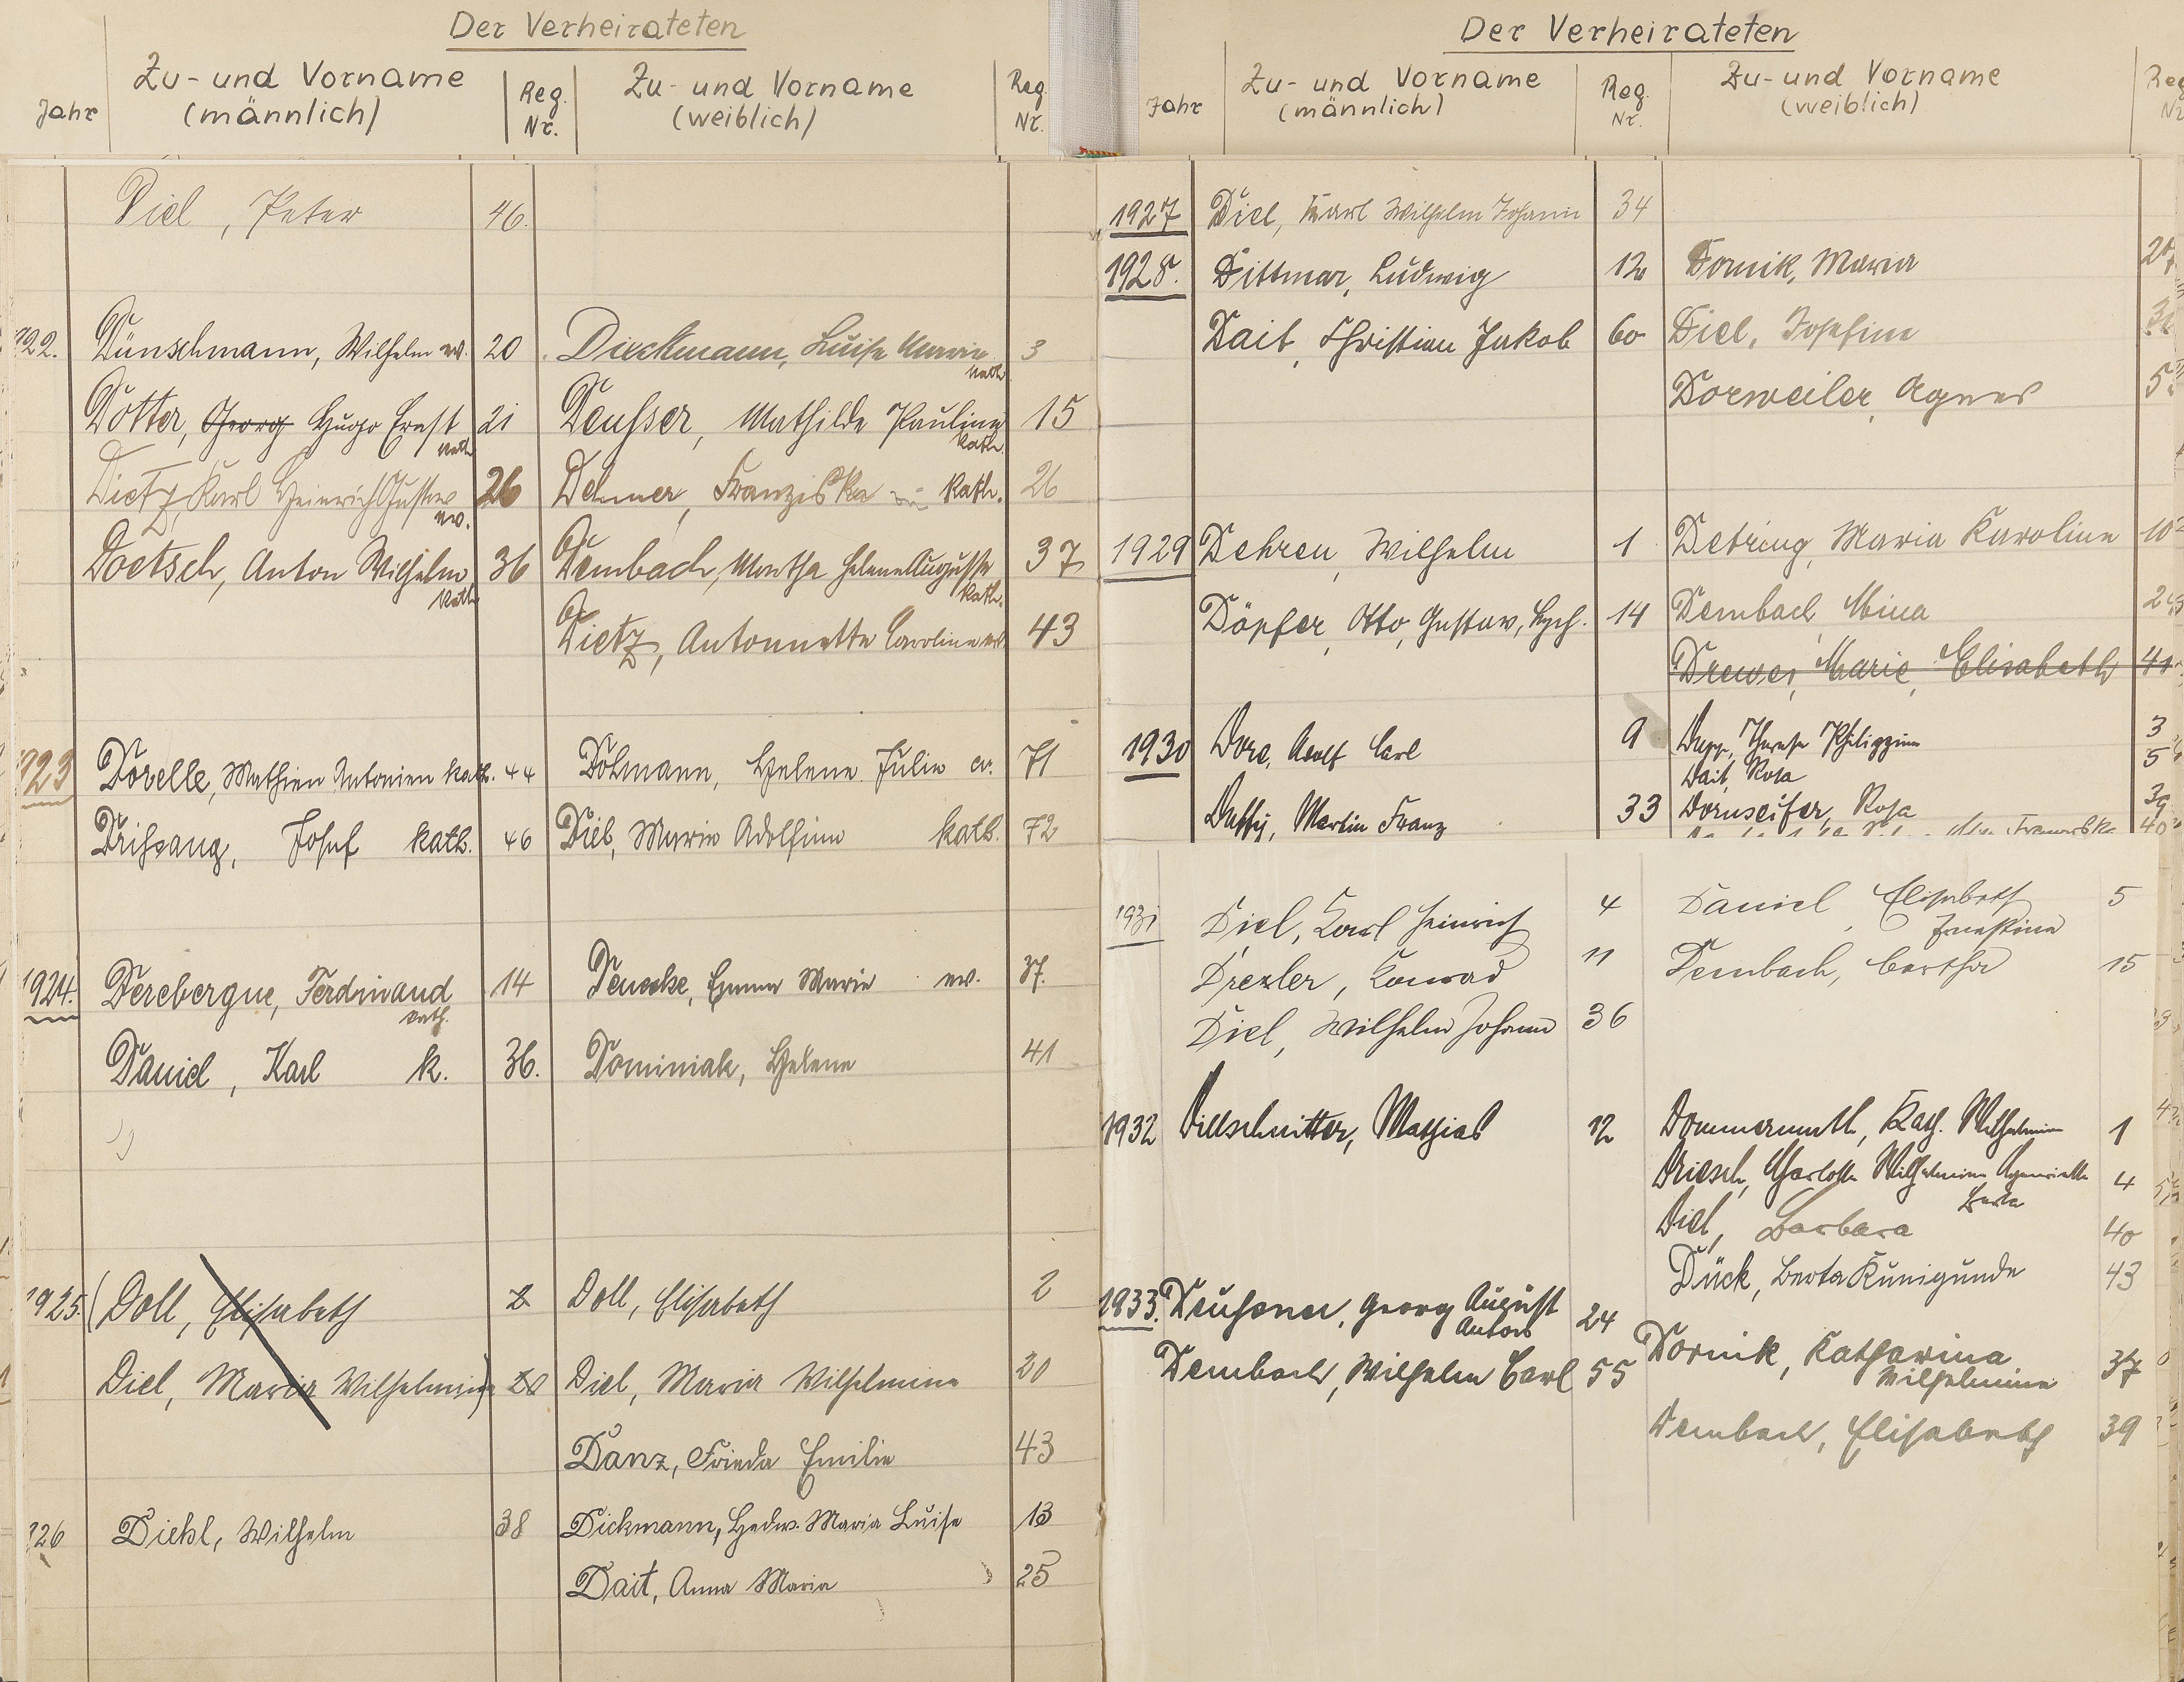 Der Verheirateten
Jahr
Zu- und Vorname
(männlich)
Reg.
Nr.
Zu- und Vorname
(weiblich)
Reg.
Nr.
Diel, Peter 46.
1922. Dünschmann, Wilhelm ev. 20 Dieckmann, Luise Maria 3
kath.
Dotter, Georg Hugo Ernst 21 Deusser, Mathilde Pauline 15
kath. kath.
Dietz, Karl Heinrich Gustav 26 Dehmer, Franziska kath. 26
ev.
Doetsch, Anton Wilhelm 36 Dembach, Martha Helene Auguste 37
kath. kath.
Dietz, Antonnette Caroline 43
1923 Dorelle, Mathien Antonien kath. 44 Dohmann, Helene Julie ev. 71
Josef kath. 46 Dieb, Maria Adolfine kath. 72
1924. Derebergue, Ferdinand 14 Emma Maria ev. 37.
kath.
Daniel, Karl k. 36. Dominiak, Helene 41
1925. (Doll, Elisabeth 2 Doll, Elisabeth 2
Diel, Maria Wilhelmine) 20 Diel, Maria Wilhelmine 20
Danz, Frieda Emilie 43
1926 Diehl, Wilhelm 38 Dickmann, Hedw. Maria Luise 13
Dait, Anna Maria 25
Der Verheirateten
Jahr
Zu- und Vorname
(männlich)
Reg.
Nr.
Zu- und Vorname
(weiblich)
Reg
Nr
1927 Diel, Karl Wilhelm Johann 34
1928. Dittmar, Ludwig 12 Dornik, Maria
Dait, Christian Jakob 60 Diel, Josefine
Dorweiler, Agnes
1929 Dehren, Wilhelm 1 Detring, Maria Karoline 10
Döpfer, Otto, Gustav, 14 Dembach Mina
Drewes, Marie, Elisabeth 41
1930 Dore, Adolf Carl 9 Therese Philippine 3
Dait, Rosa 5
Martin Franz 33 Dornseifer, Rosa 39
40
1931 Diel, Karl Heinrich 4 Daniel, Elisabeth 5
Ernestine
Drexler, Konrad 11 Dembach, Bertha 15
Diel, Wilhelm Johann 36
1932 Dillschnitter, Mathias 12 Dommermuth, Kath. Wilhelmine 1
Driesch, Charlotte Wilhelmine Henriette 4
Berta
Diel, Barbara 40
Dück, Berta Kunigunde 43
1933. Deusener, Georg August 24
Anton
Dornik, Katharina 37
Wilhelmine
Dembach, Wilhelm Carl 55
Dembach, Elisabeth 39